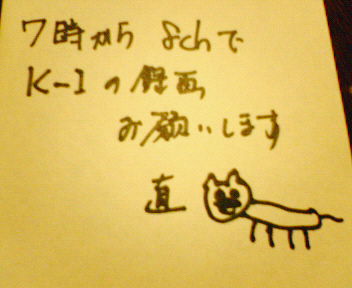 7時から 8chで
K-1の録画
お願いします
直